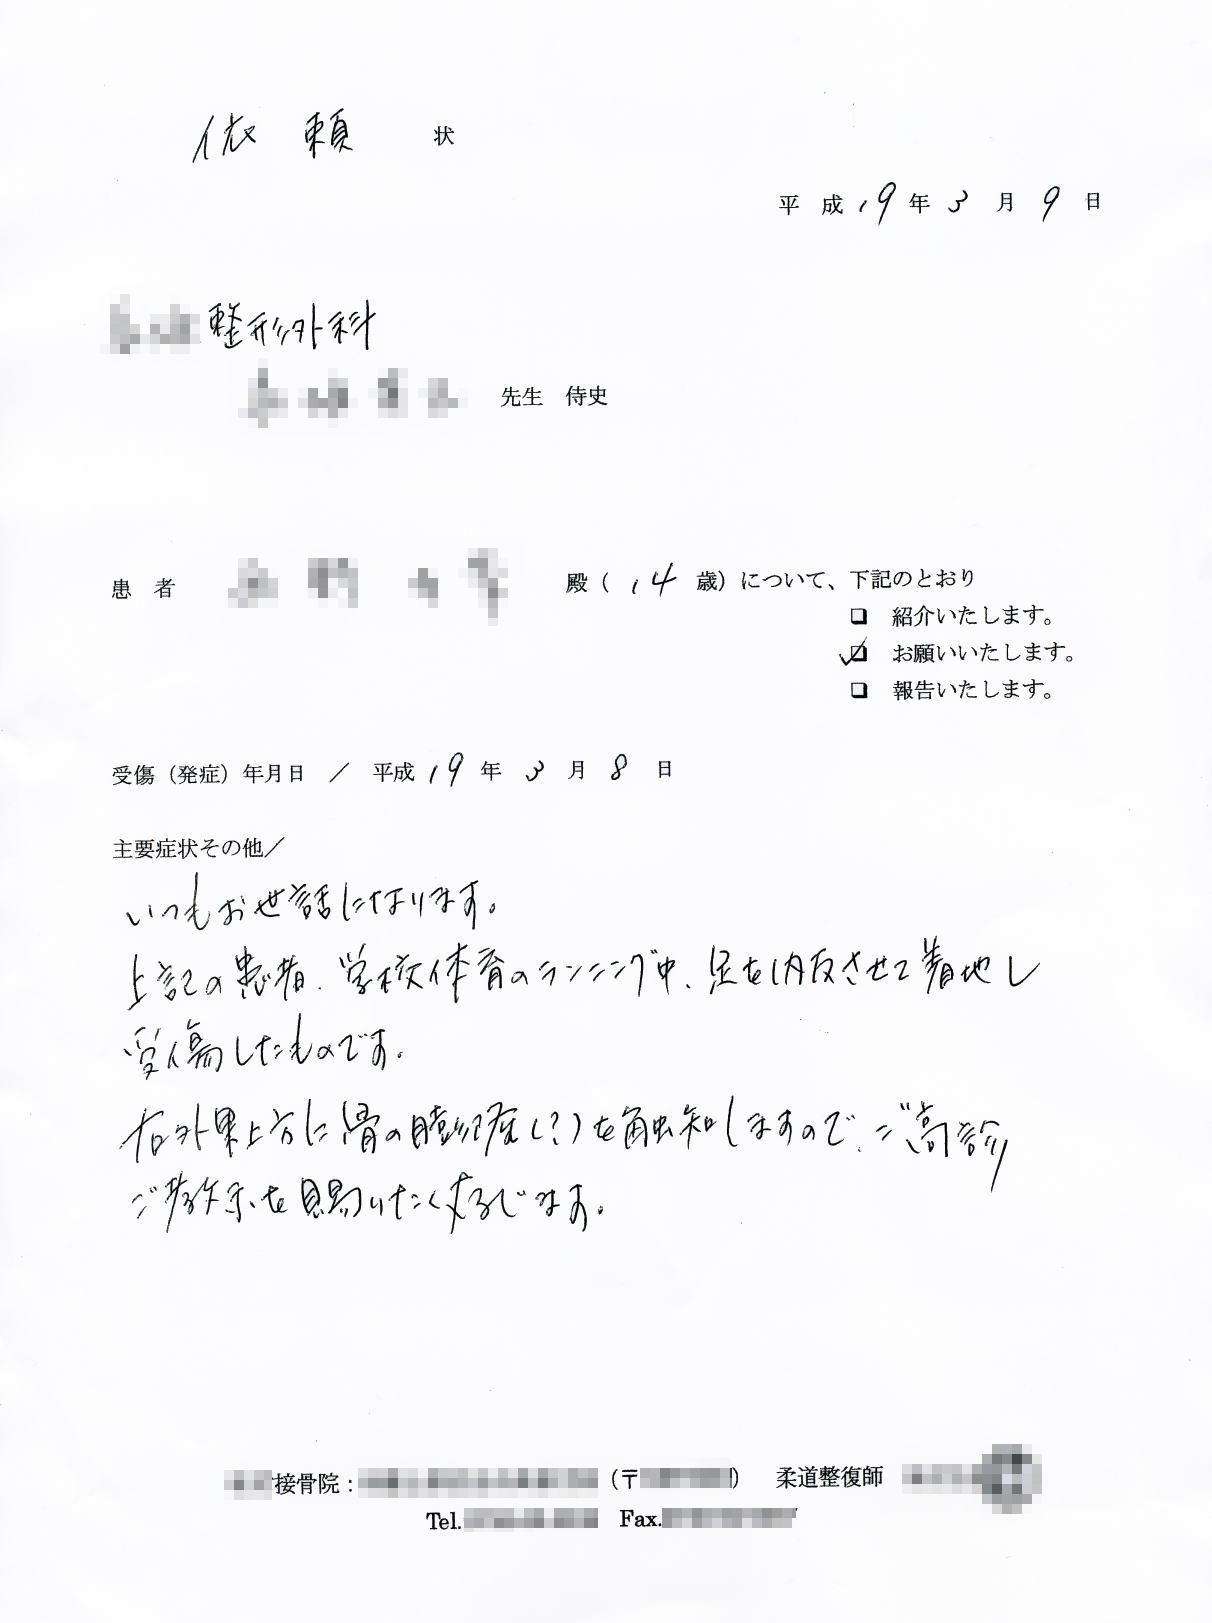 依頼 状
平成19年3月9日
整形外科
先生 侍史
患者 殿(14歳)について、下記のとおり
❑ 紹介いたします。
❑ お願いいたします。
❑ 報告いたします。
受傷(発症)年月日 / 平成19年3月8日
主要症状その他/
いつもお世話になります。
上記の患者、学校体育のランニング中、足を内反させて着地し
受傷したものです。
右外果上方に骨の膨隆(?)を触知しますので、ご高診
ご教示を賜りたく存じます。
接骨院: (〒 ) 柔道整復師
Tel. Fax.